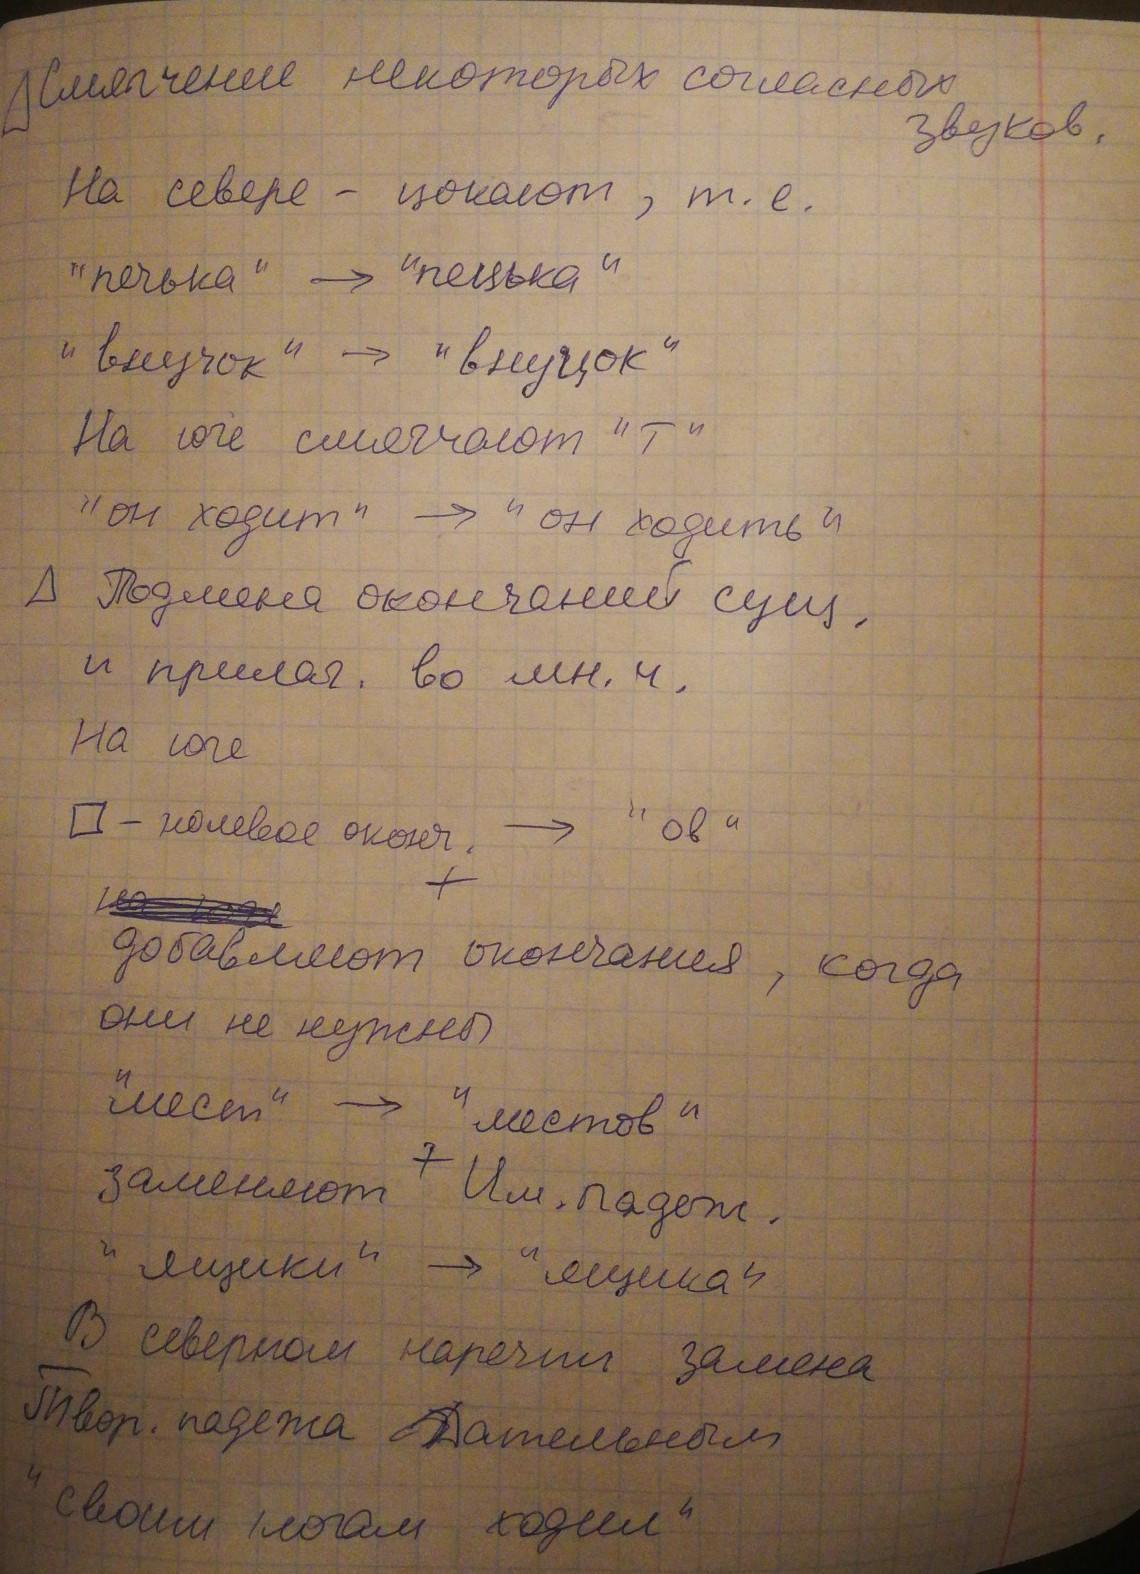 Смягчение некоторых согласных
звуков.
На севере - цокают, т.е.
"печька" → "пецька"
"внучок" → "внуцок"
На юге смягчают "т"
"он ходит" → "он ходить"
Δ Подмена окончаний сущ.
и прилаг. во мн.ч.
На юге
□ - нолевое оконч. → "ов"
+
добавляют окончания, когда
они не нужны
"мест" → "местов"
+
заменяют Им. падеж.
"ящики" → "ящика"
В северном наречии замена
Твор. падежа Дательным
"своим ногам ходил"